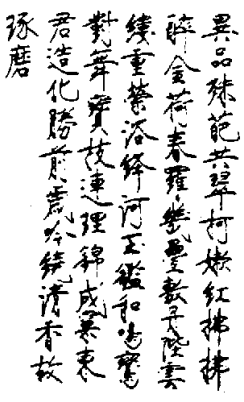 異品殊葩共翠柯嫩紅拂拂
醉金荷春羅幾疊敷丹陛雲
縷重縈浴絳河玉鑑和鳴鸞
對舞寶枝連理錦成窠東
君造化勝前歲吟繞清香故
琢磨